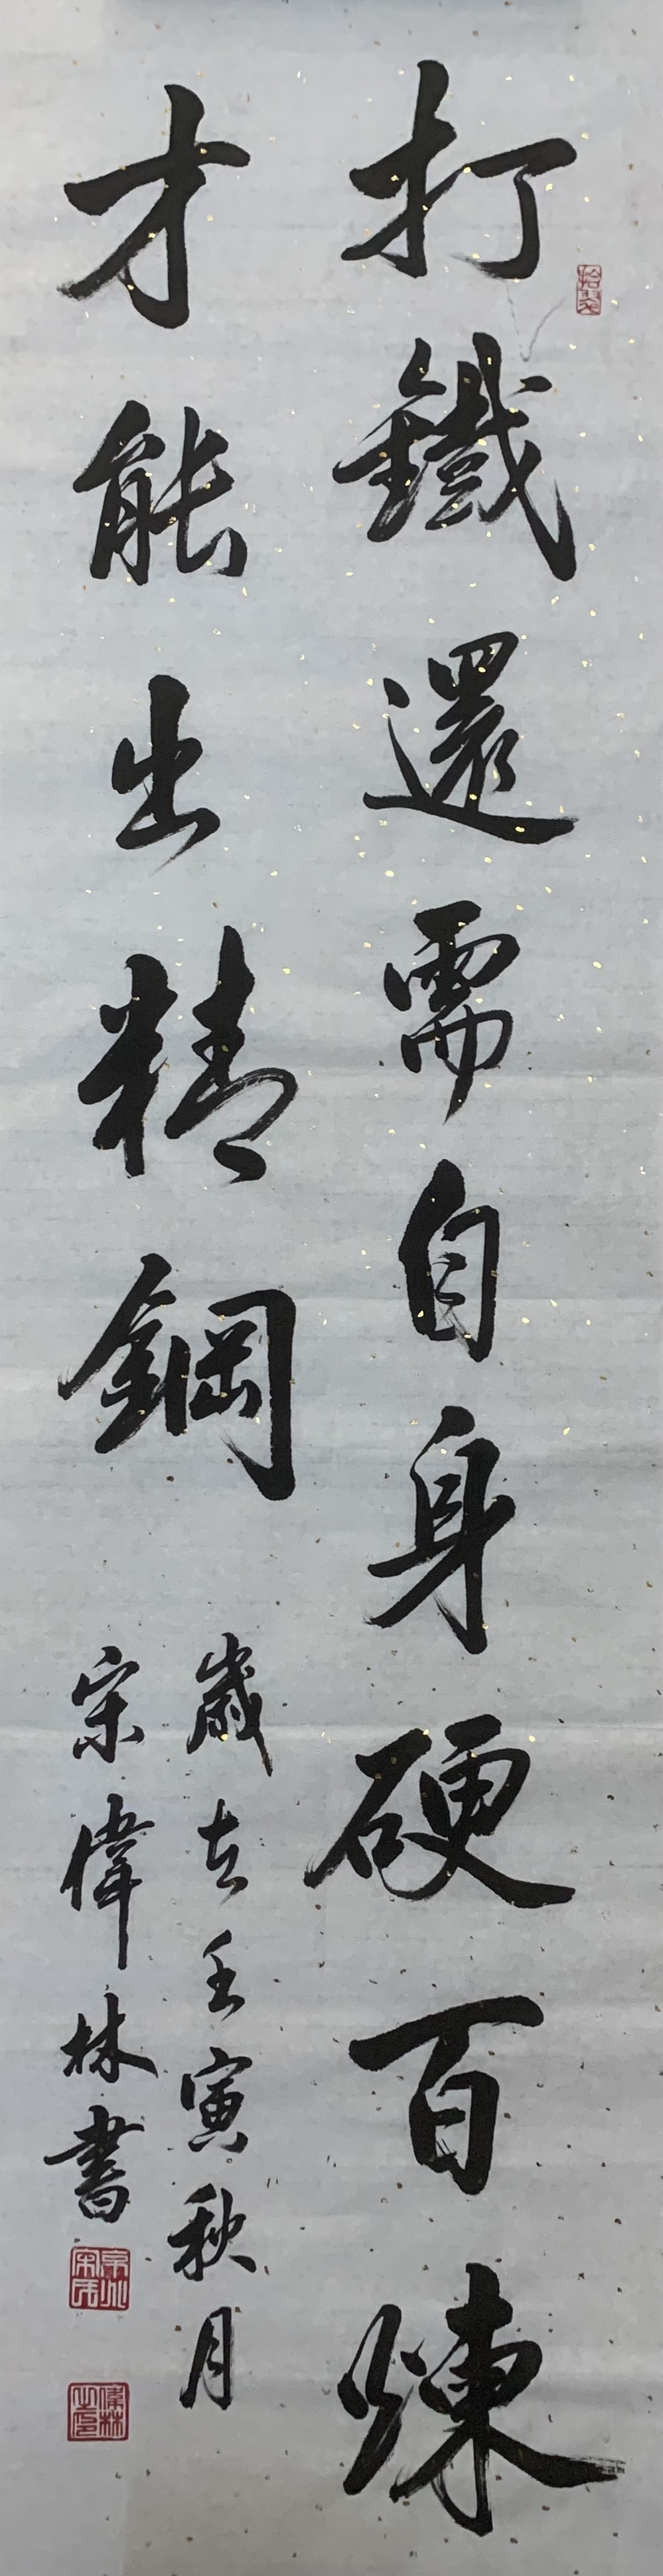 打鐵還需自身硬百煉
才能出精鋼
歲在壬寅秋月
宋偉林書
偉林之印